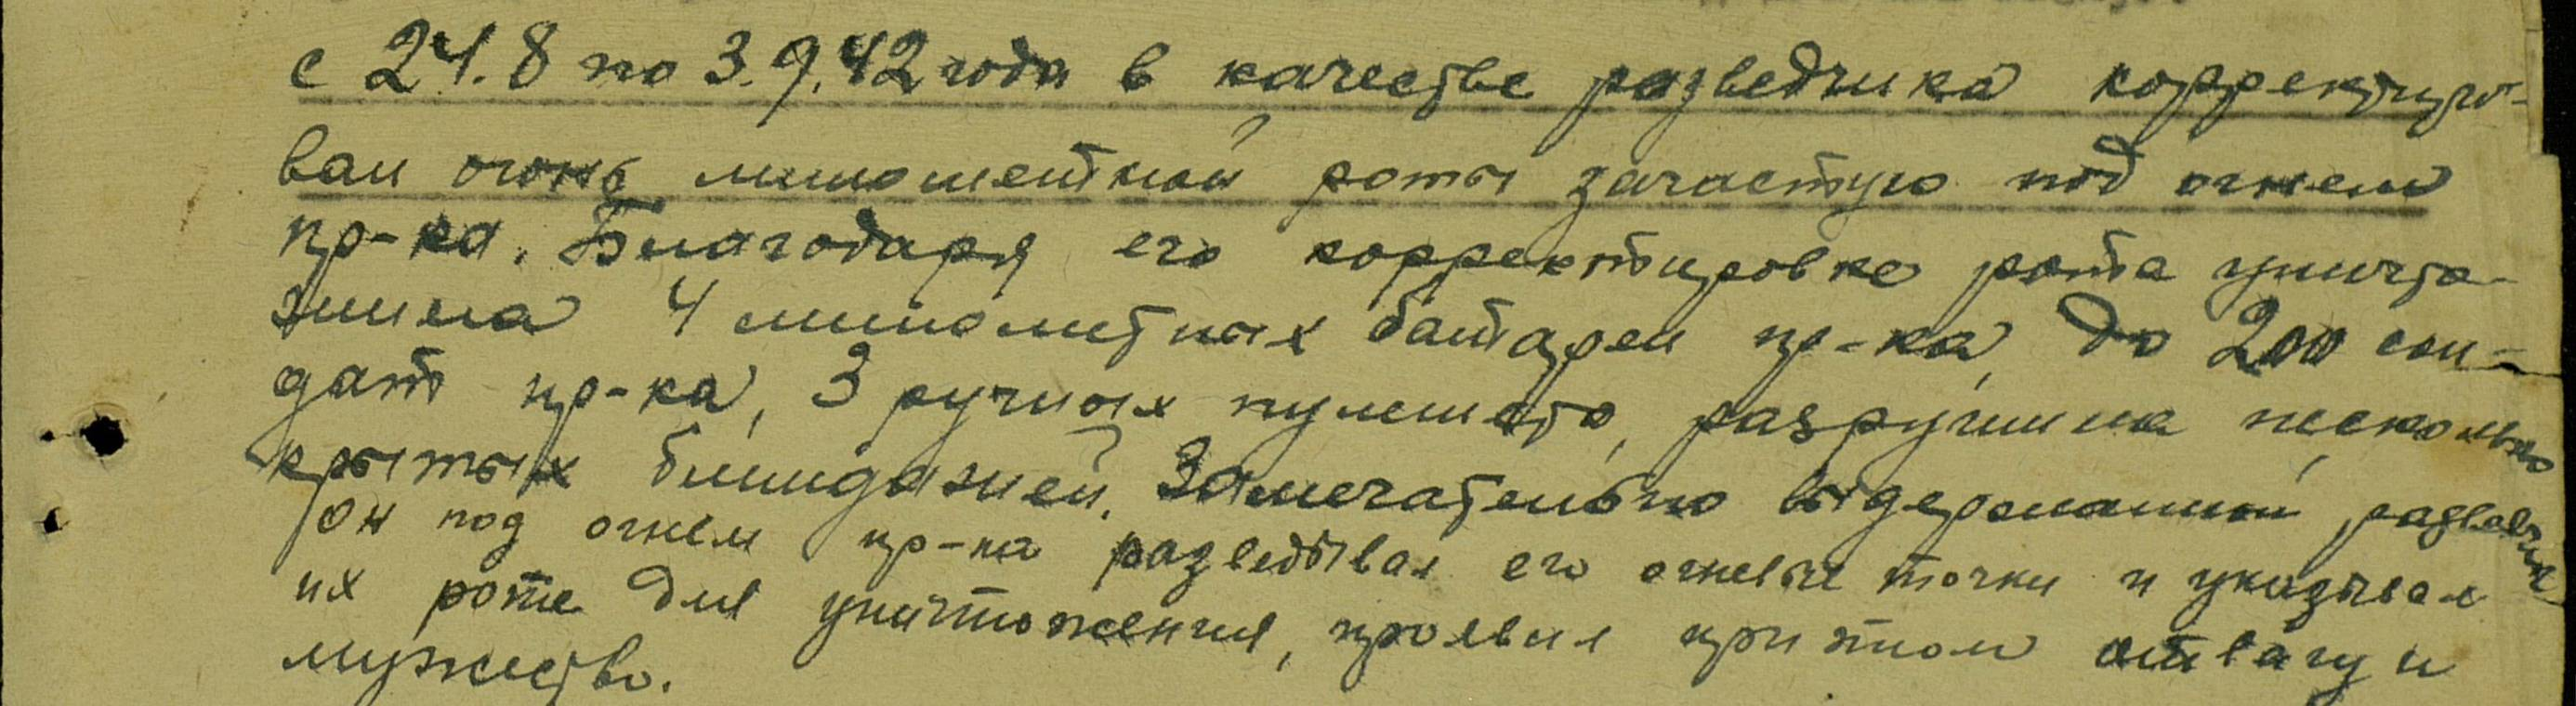 с 24.8 по 3.9.42 года в качестве разведчика корректиро-
вал огонь минометной роты зачастую под огнем
пр-ка. Благодаря его корректировке рота уничто-
жила 4 минометных батареи пр-ка, до 200 сол-
дат пр-ка, 3 ручных пулемета, разрушила несколько
крытых блиндажей. Замечательно выдержанный разведчик
он под огнем пр-ка разведывал его огневые точки и указывал
их роте для уничтожения, проявил при этом отвагу и
мужество.